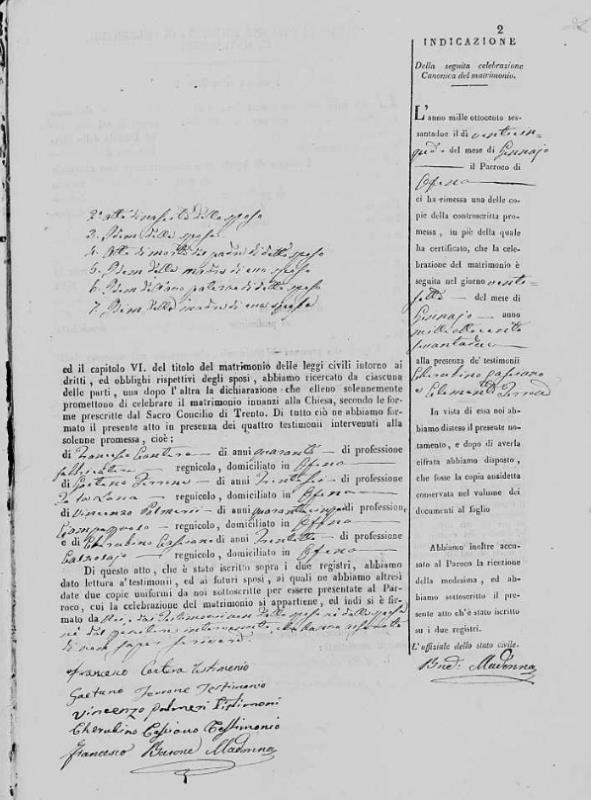 2
2° Atto di nascita dello sposo
3. Idem della sposa
4. Atto di morte del padre di detto sposo
5. Idem della madre di esso sposo
6. Idem dell'Avo paterno di detto sposo
7. Idem della madre di essa sposa
ed il capitolo VI. del titolo del matrimonio delle leggi civili intorno ai
dritti, ed obblighi rispettivi degli sposi, abbiamo ricercato da ciascuna
delle parti, una dopo l'altra la dichiarazione che elleno solennemente
promettono di celebrare il matrimonio innanzi alla Chiesa, secondo le for-
me prescritte dal Sacro Concilio di Trento. Di tutto ciò ne abbiamo for-
mato il presente atto in presenza dei quattro testimonii intervenuti alla
solenne promessa, cioè:
di Francesco Cantera di anni quaranta di professione
regnicolo, domiciliato in Ofena
di Gaetano Terrone di anni di professione
regnicolo, domiciliato in Ofena
di Vincenzo Palmeri di anni quarantacinque di professione
regnicolo, domiciliato in Ofena
e di Cherubino Cassiano di anni trentotto di professione
Calzolajo regnicolo, domiciliato in Ofena
Di questo atto, che è stato iscritto sopra i due registri, abbiamo
dato lettura a' testimonii, ed ai futuri sposi, ai quali ne abbiamo altresì
date due copie uniformi da noi sottoscritte per essere presentate al Par-
roco, cui la celebrazione del matrimonio si appartiene, ed indi si è fir-
mato da Noi, dai Testimonj non dallo sposo né dalla sposa
né dal genitore intervenuto, che hanno
di non saper scrivere
Francesco Cantera Testimonio
Gaetano Terrone Testimonio
Vincenzo Palmeri Testimoni
Cherubino Cassiano Testimonio
Francesco Barone Madonna
INDICAZIONE
Della seguita celebrazione
Canonica del matrimonio.
L'anno mille ottocento ses-
santadue il dì venticin-
que del mese di Gennajo
il Parroco di
Ofena
ci ha rimessa una delle co-
pie della controscritta pro-
messa, in piè della quale
ha certificato, che la cele-
brazione del matrimonio è
seguita nel giorno venti-
del mese di
Gennajo anno
mille ottocento
sessantadue
alla presenza de' testimonii
Cherubino Cassiano
e Clemente
In vista di essa noi ab-
biamo disteso il presente no-
tamento, e dopo di averla
cifrata abbiamo disposto,
che fosse la copia suaddetta
conservata nel volume dei
documenti al foglio
Abbiamo inoltre accu-
sato al Parroco la ricezione
della medesima, ed ab-
biamo sottoscritto il pre-
sente atto ch'è stato iscritto
su i due registri.
L'uffiziale dello stato civile.
Madonna